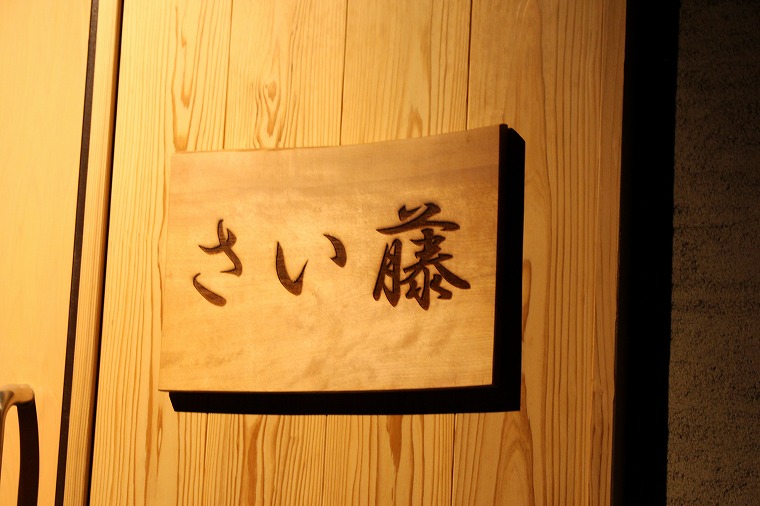 さい藤